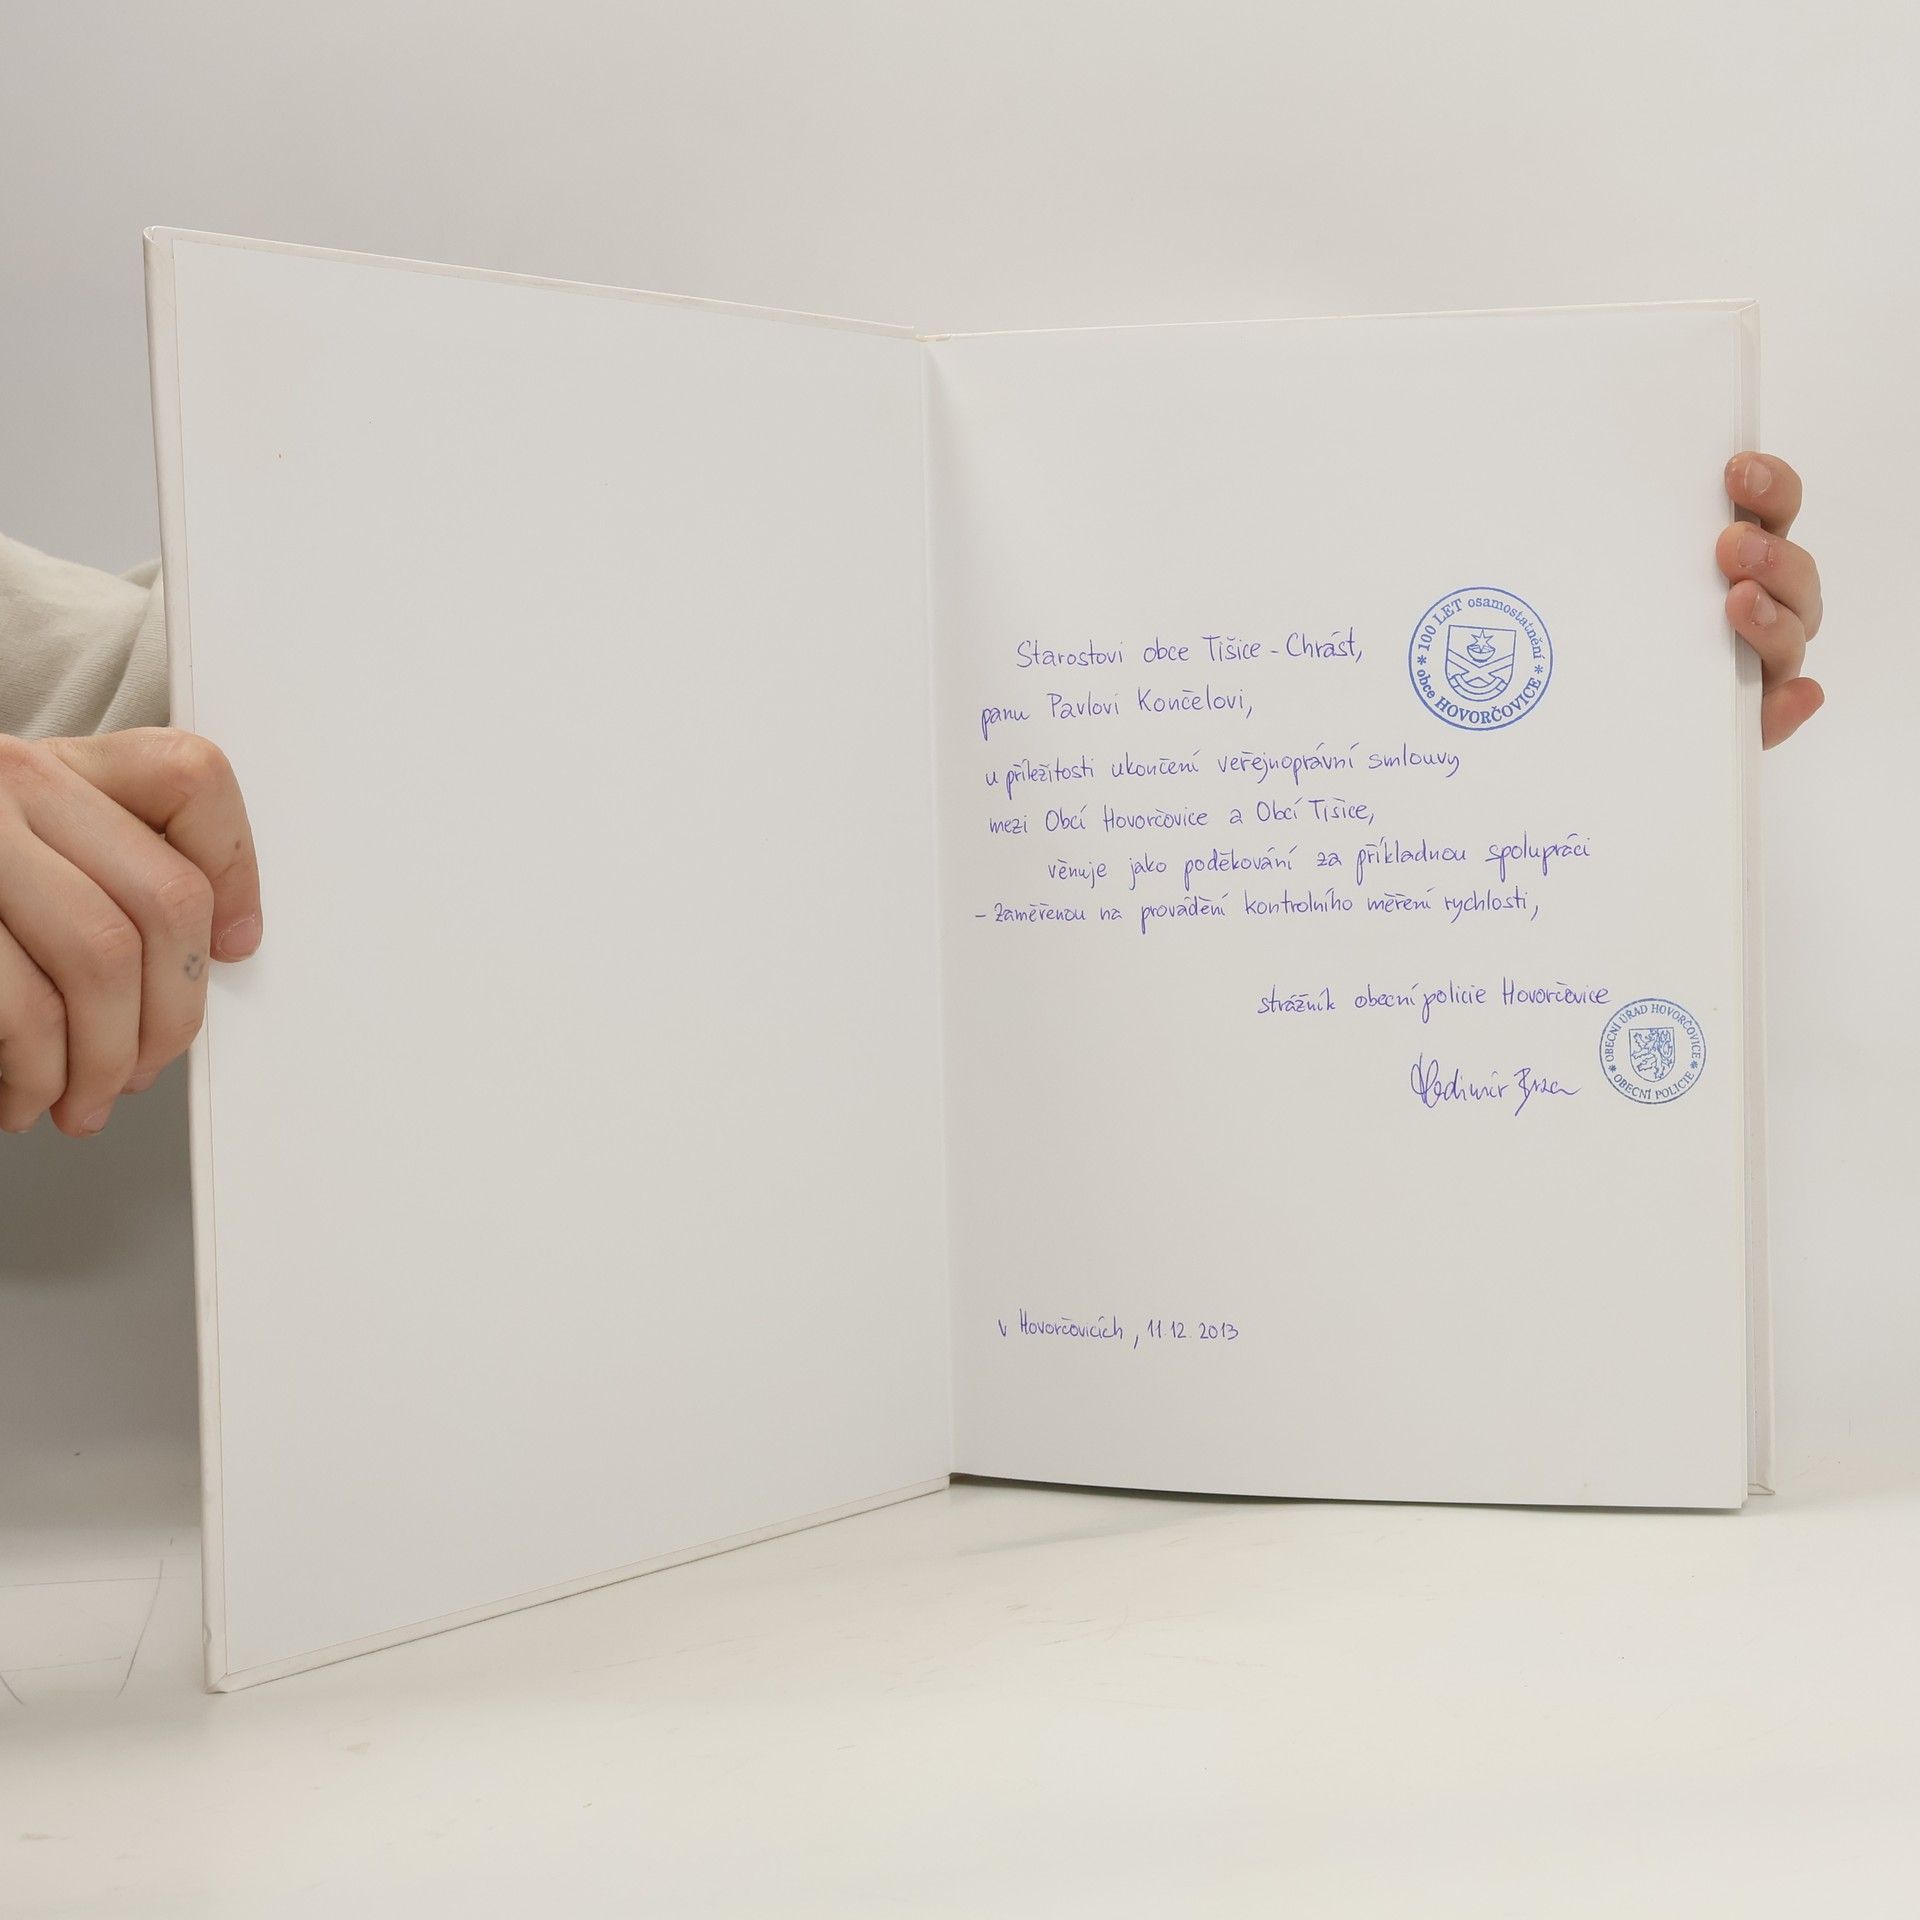 Starostovi obce Tišice - Chrást,
panu Pavlovi Končelovi,
u příležitosti ukončení veřejnoprávní smlouvy
mezi Obcí Hovorčovice a Obcí Tišice,
věnuje jako poděkování za příkladnou spolupráci
- zaměřenou na provádění kontrolního měření rychlosti,
strážník obecní policie Hovorčovice
Vladimír
v Hovorčovicích, 11.12.2013
* 100 LET osamostatnění *
obce HOVORČOVICE
OBECNÍ ÚŘAD HOVORČOVICE
* OBECNÍ POLICIE *